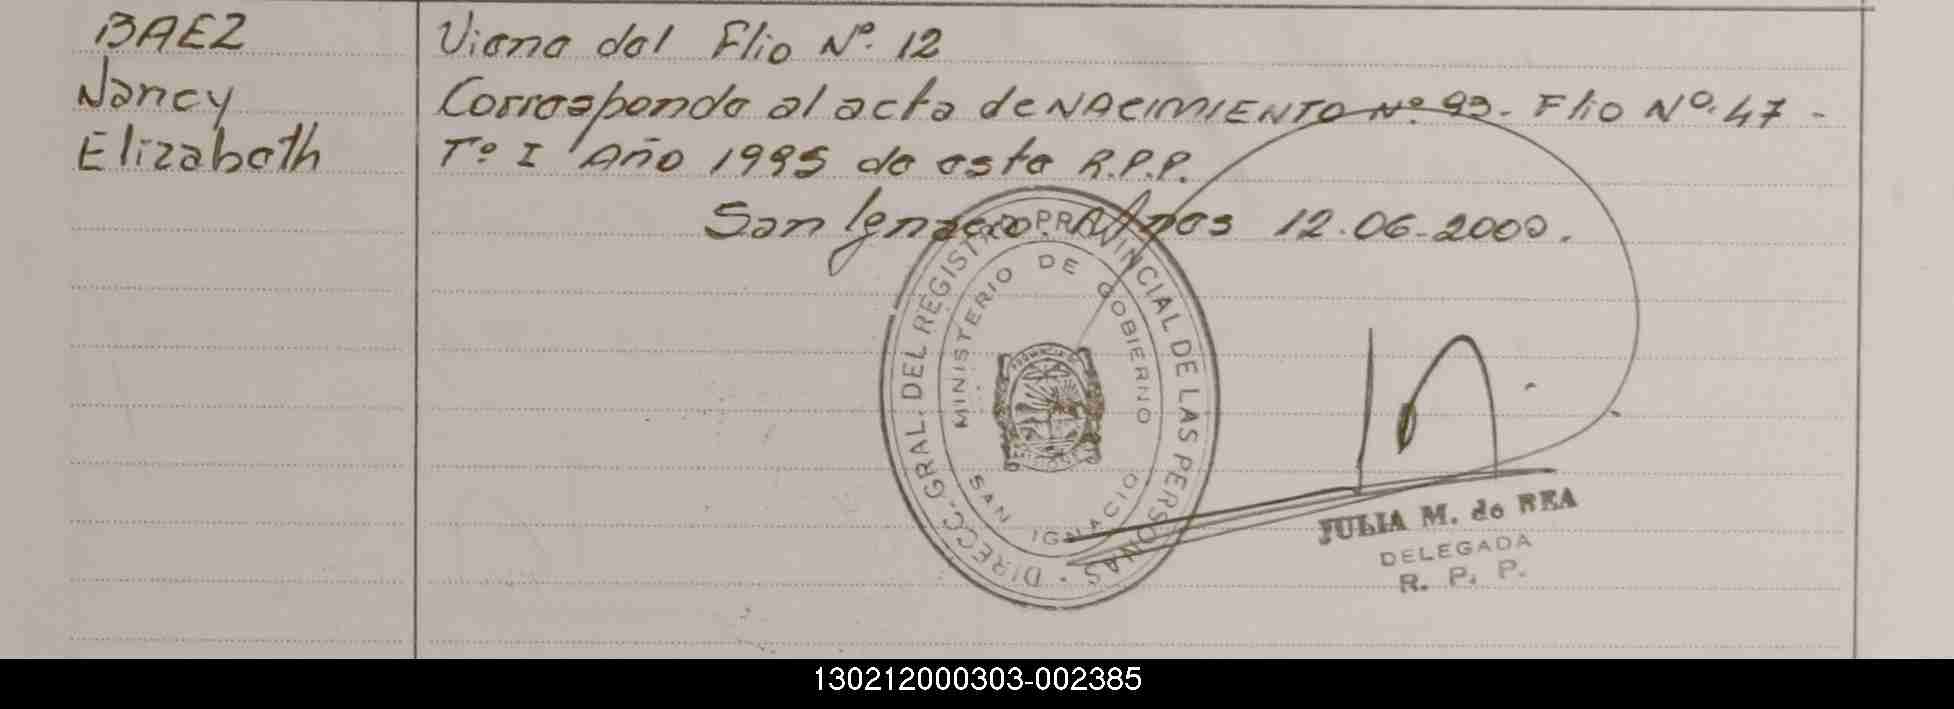 BAEZ
Nancy
Elizabeth
Viene del Flio Nº. 12
Corresponde al acta de NACIMIENTO Nº. 93 - Flio Nº. 47 -
Tº I Año 1995 de este R.P.P.
San Ignacio Mnes 12.06.2000.
DIRECC. GRAL. DEL REGISTRO PROVINCIAL DE LAS PERSONAS
MINISTERIO DE GOBIERNO
SAN IGNACIO
JULIA M. de REA
DELEGADA
R. P. P.
130212000303-002385